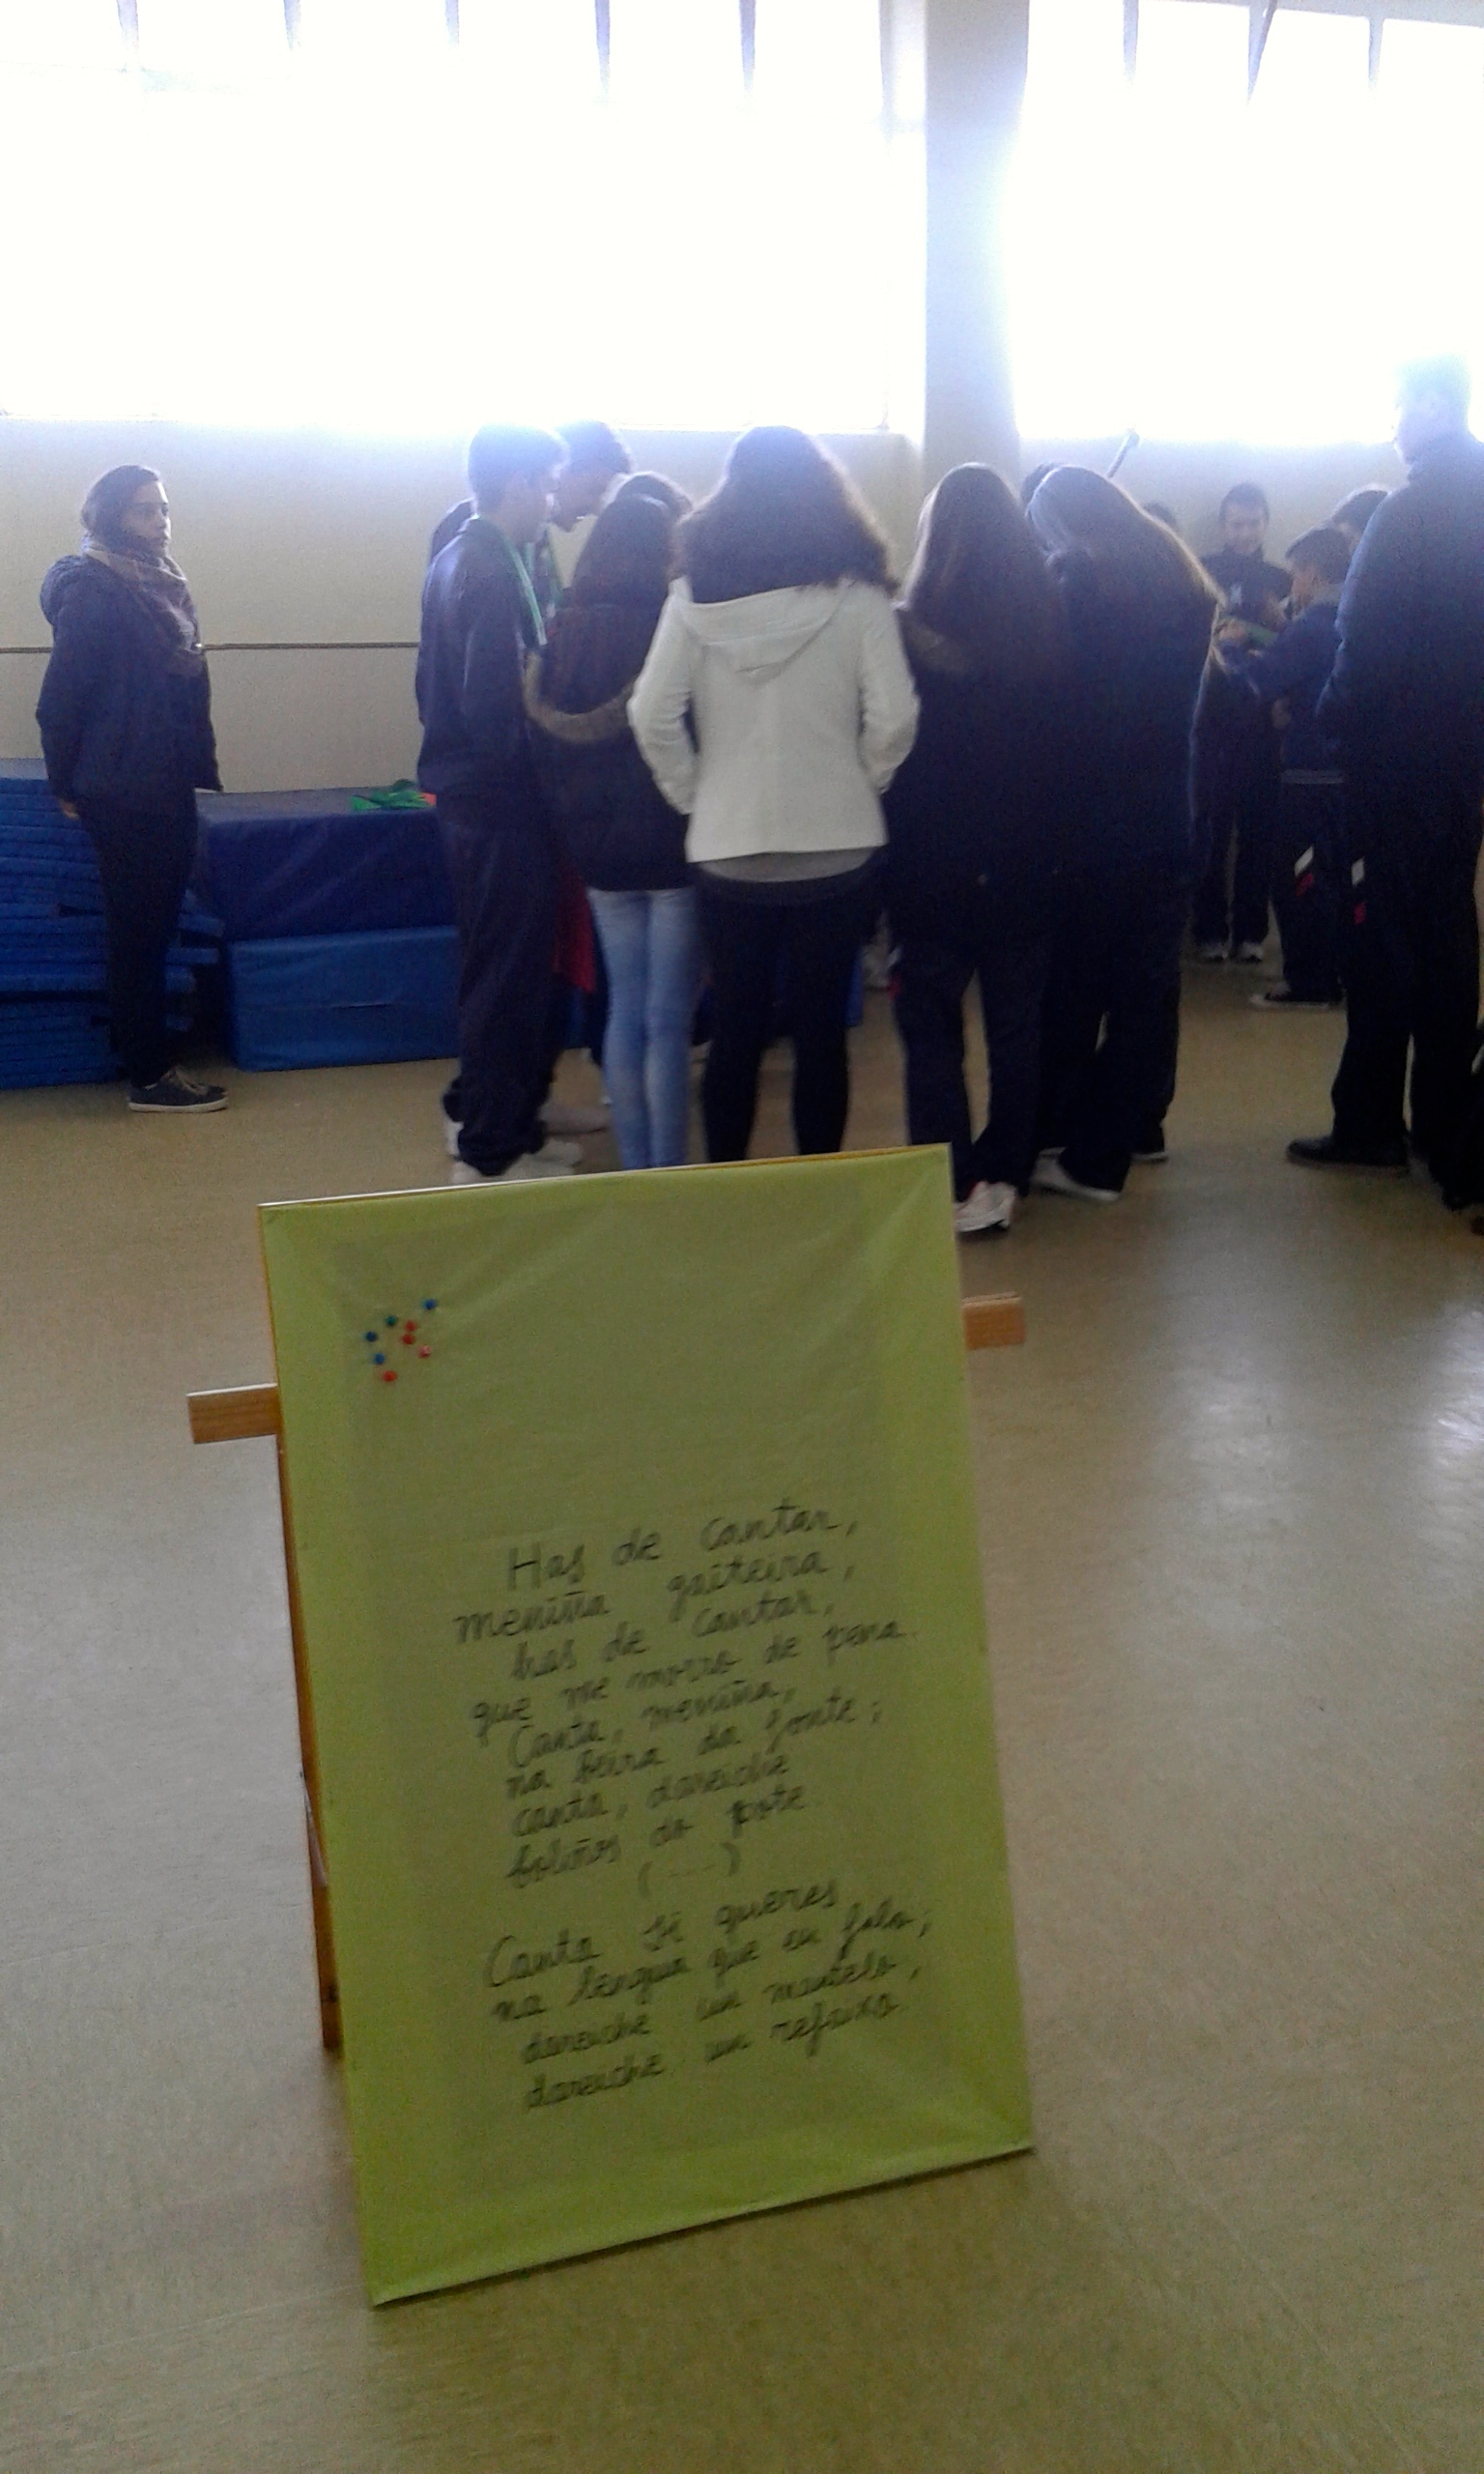 Has de cantar,
meniña gaiteira,
has de cantar,
que me morro de pena.
Canta, meniña,
na beira da fonte;
canta, dareiche
boliños do pote.
(...)
Canta si queres
na lengua que eu falo;
dareiche un mantelo,
dareiche un refaixo.